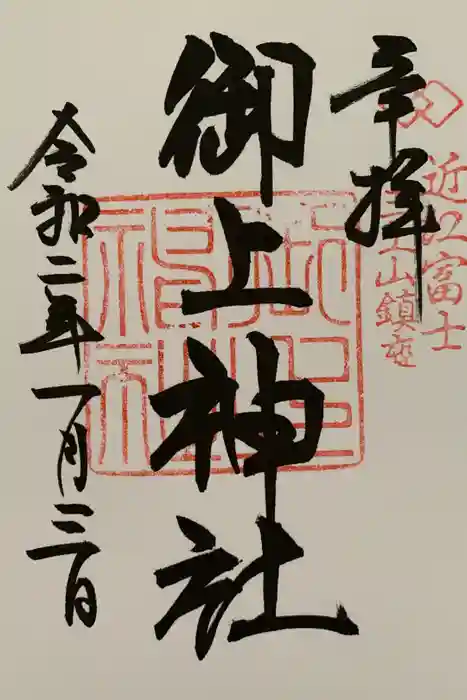 奉拝
近江富士
三上山鎮座
御上神社
御上神社
令和二年一月三日